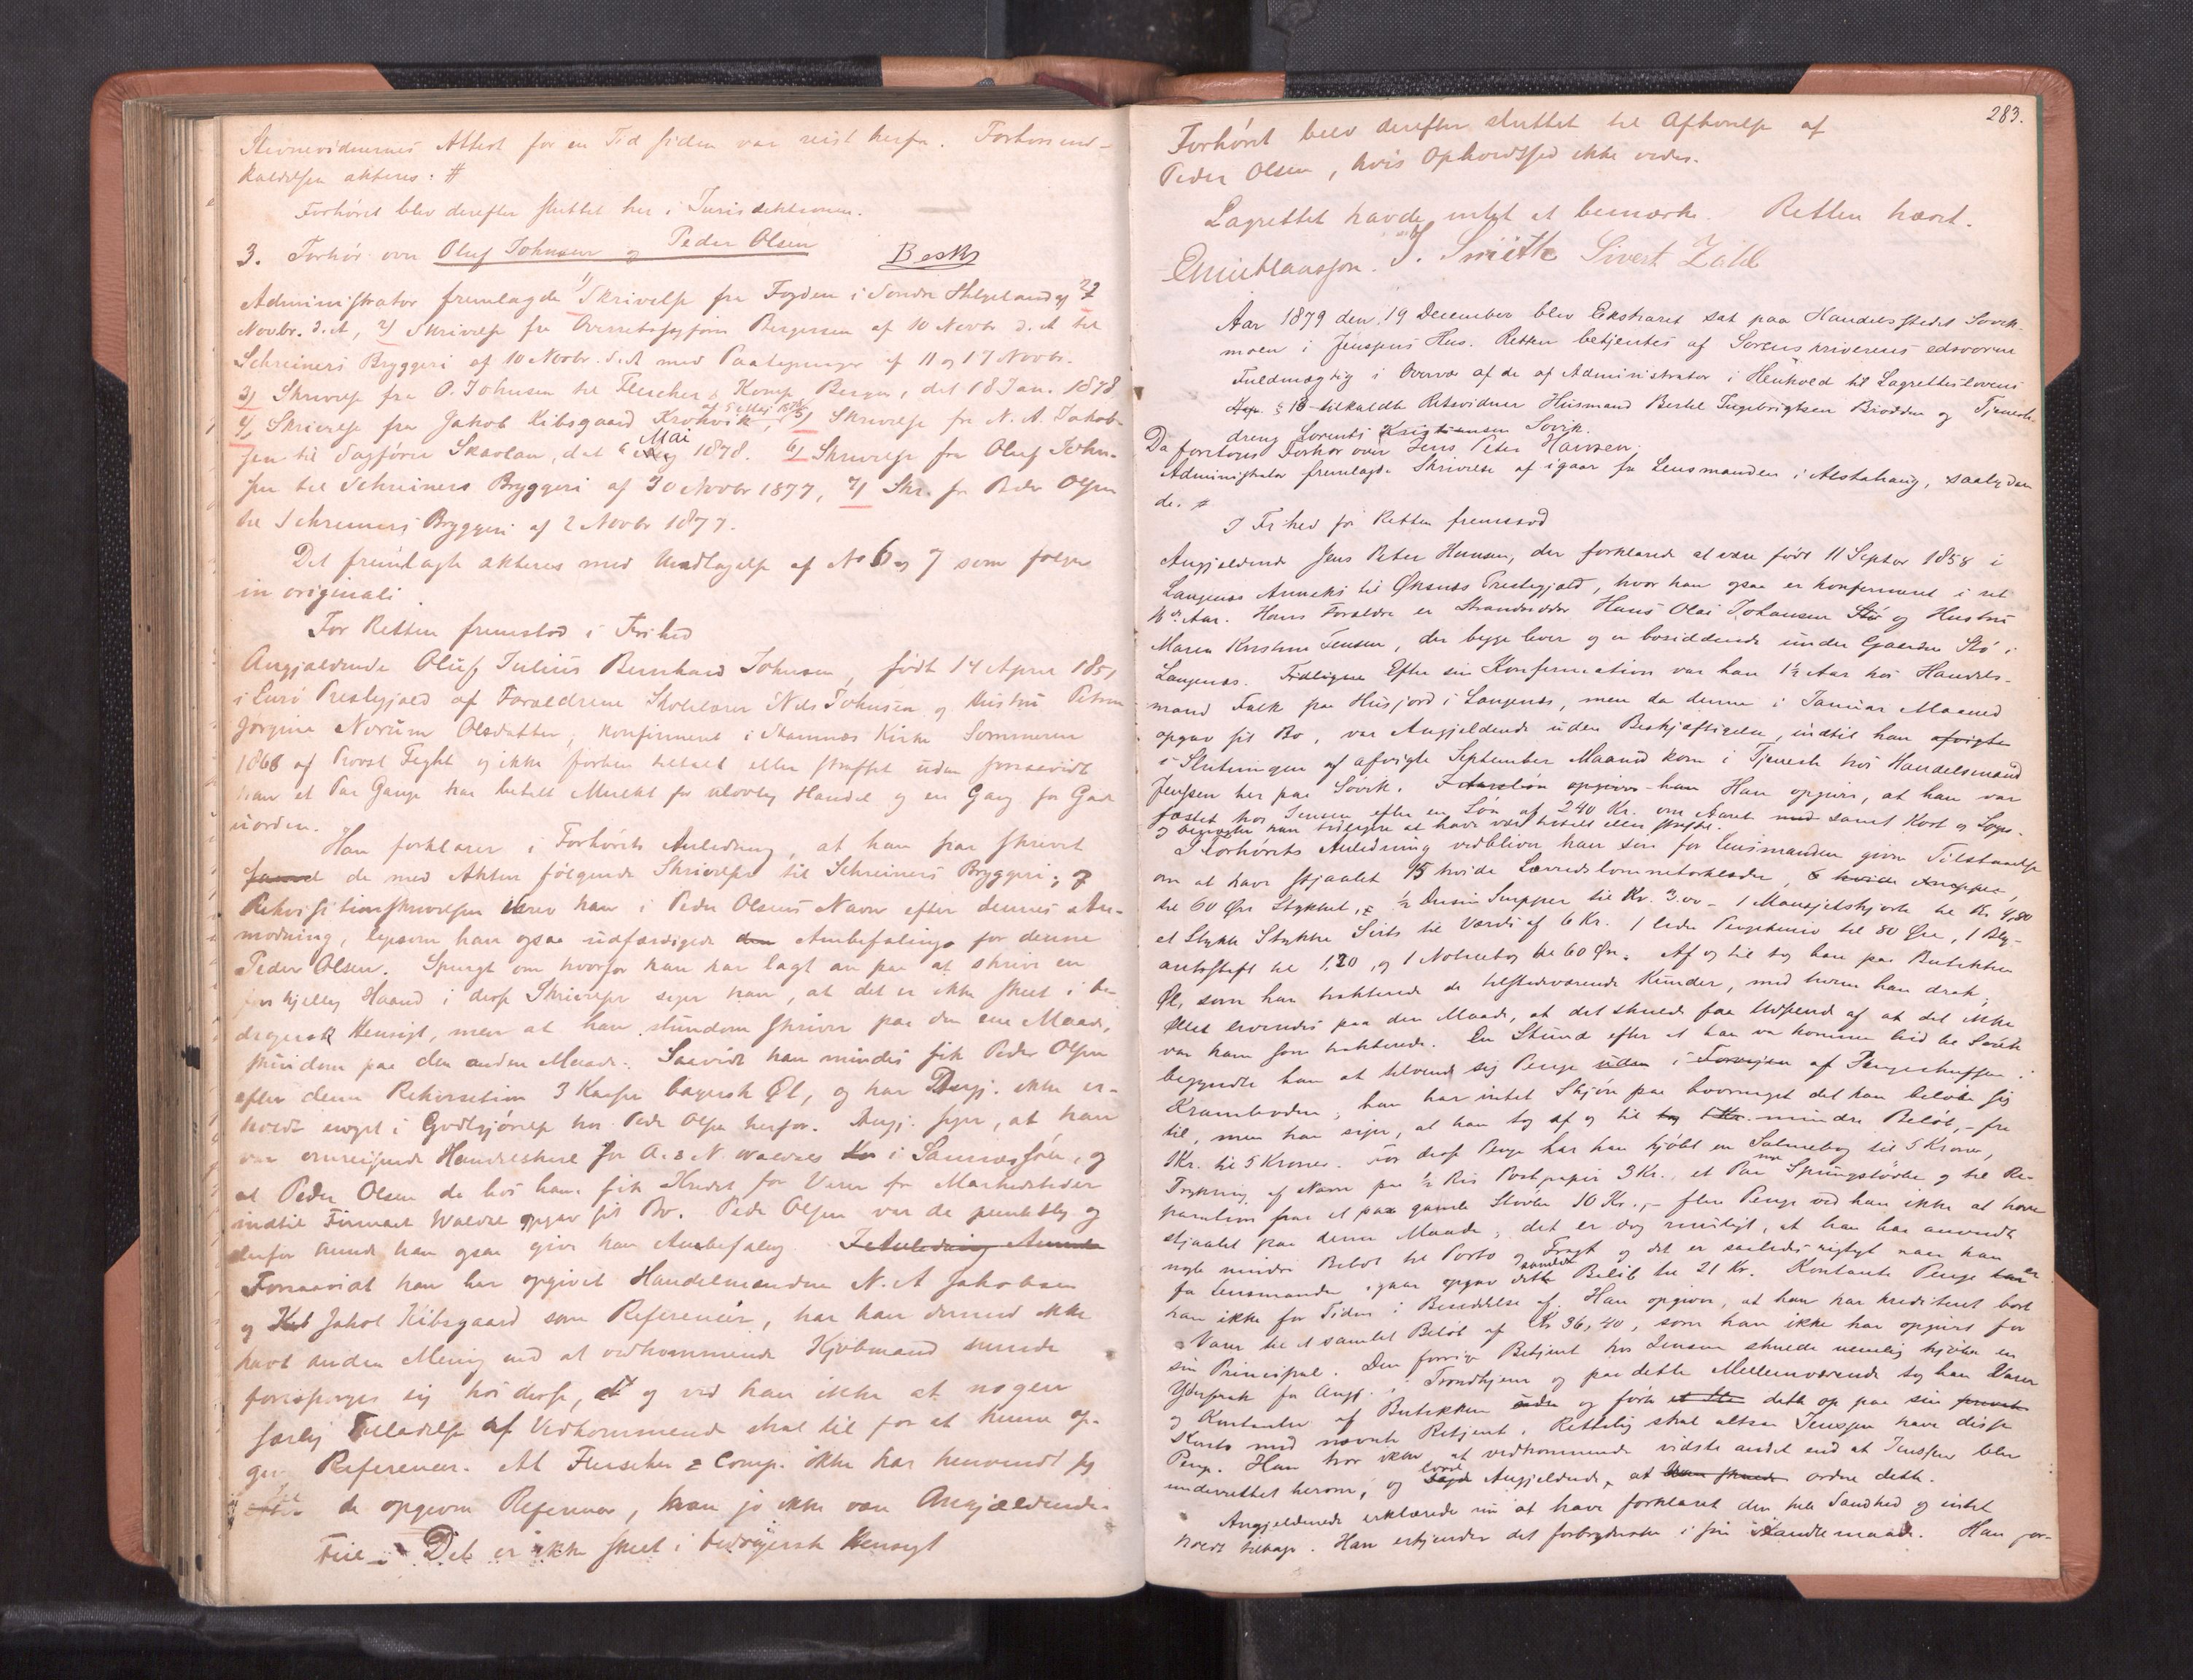 Stevnevidnernes Attest for en Tid siden var reist herfra. Forhørsind-
kaldelsen akteres: #
Forhøret blev derefter sluttet her i Jurisdiktionen.
3. Forhør over Oluf Johnsen og Peder Olsen Beskr
Administrator fremlagde 1) Skrivelse fra Fogden i Søndre Helgeland af 27
Novbr. d. A, 2) Skrivelse fra Overretssagfører Bergersen af 10 Novbr d. A til
Schreiners Bryggeri af 10 Novbr. d. A med Paategninger af 11 og 17 Novbr.
3) Skrivelse fra O. Johnsen til Fleischer & Komp Bergen, dat 18 Jan. 1878
4) Skrivelse fra Jakob Kibsgaard Krokvik, af 5 Mai 1878 5) Skrivelse fra N. A. Jakob-
sen til Sagfører Skavlan, dat 6 Mai 1878. 6) Skrivelse fra Oluf John-
sen til Schreiners Bryggeri af 30 Novbr 1877, 7) Skr. fra Peder Olsen
til Schreiners Bryggeri af 2 Novbr 1877.
Det fremlagte akteres med Undtagelse af No 6 og 7 som følger
in originali.
For Retten fremstod i Frihed
Angjældende Oluf Julius Bernhard Johnsen, født 14 April 1851
i Lurø Prestegjeld af Forældrene Skolelærer Nils Johnsen og Hustru Petrine
Jørgine Norum Olsdatter, konfirmeret i Stamnæs Kirke Sommeren
1868 af Provst Feght og ikke forhen tiltalt eller straffet uden forsaavidt
han et Par Gange har betalt Mulkt for ulovlig Handel og en Gang for Gade
uorden.
Han forklarer i Forhørets Anledning, at han har skrevet
de med Akten følgende Skrivelser til Schreiners Bryggeri;
Rekvisitionsskrivelsen skrev han i Peder Olsens Navn efter dennes An-
modning, ligesom han ogsaa udfærdigede Anbefaling for denne
Peder Olsen. Spurgt om hvorfor han har lagt an paa at skrive en
forskjellig Haand i disse Skrivelser siger han, at det er ikke skeet i be
dragersk Hensigt, men at han stundom skriver paa den ene Maade,
stundom paa den anden Maade. Saavidt han mindes fik Peder Olsen
efter denne Rekvisition 3 Kasser bayersk Øl, og har Angj. ikke er-
holdt noget i Godtgjørelse hos Peder Olsen herfor. Angj. siger, at han
var omreisende Handelskarl for A. & N. Waldes i Sannessøen, og
at Peder Olsen da hos ham fik Kredit for Varer fra Markedstider
indtil Firmaet Waldes opgav sit Bo. Peder Olsen var da punktlig og
derfor kunde han ogsaa give ham Anbefaling. I Anledning
Forsaavidt han har opgivet Handelsmændene N. A Jakobsen
og Jakob Kibsgaard som Referencer, har han dermed ikke
havt anden Mening end at vedkommende Kjøbmand kunde
forespørges sig hos disse, og ved han ikke at nogen
særlig Tilladelse af Vedkommende skal til for at kunne op-
give Referencer. At Fleischer & Comp. ikke har henvendt sig
til de opgivne Referencer, kan jo ikke være Angjældendes
Feil. Det er ikke skeet i bedragersk Hensigt
283.
Forhøret blev derefter sluttet til Afhørelse af
Peder Olsen, hvis Opholdssted ikke vides.
Lagrettet havde intet at bemærke. Retten hævet.
Emil Klaussen. J. Smith Sivert Zahl
Aar 1879 den 19 December blev Ekstraret sat paa Handelsstedet Søvik-
moen i Jenssens Hus. Retten betjentes af Sorenskriverens edsvorne
Fuldmægtig i Overvær af de af Administrator i Henhold til Lagrettislovens
§ 18 tilkaldte Retsvidner Husmand Bertel Ingebrigtsen Brodden og Tjeneste-
dreng Lorents Kristiansen Søvik.
Da foretoges Forhør over Jens Peter Hansen.
Administrator fremlagde Skrivelse af igaar fra Lensmanden i Alstahaug, saalyden
de. #
I Frihed for Retten fremstod
Angjeldende Jens Peter Hansen, der forklarede at være født 11 Septbr 1858 i
Langenes Anneks til Øksnes Prestegjeld, hvor han ogsaa er konfirmeret i sit
16de Aar. Hans Forældre er Strandsidder Hans Olai Johansen Stø og Hustru
Maren Kristine Jensen, der begge lever og er bosiddende under Gaarden Stø i
Langenes. Efter sin Konfirmation var han 1½ Aar hos Handels-
mand Falk paa Husjord i Langenes, men da denne i Januar Maaned
opgav sit Bo, var Angjeldende uden Beskjæftigelse, indtil han afvigte
i Slutningen af afvigte September Maaned kom i Tjeneste hos Handelsmand
Jenssen her paa Søvik. I Aarsløn opgives han Han opgiver, at han var
fæstet hos Jenssen efter en Løn af 240 Kr. om Aaret samt Kost og Logis.
og benegter han tidligere at have været tiltalt eller straffet.
I Forhørets Anledning vedbliver han sin for Lensmanden givne Tilstaaelse
om at have stjaalet 15 hvide Lærredslommetørklæder, 6 hvide Snipper,
til 60 Øre Stykket, ½ Dusin Snipper til Kr. 3.00 - 1 Mansjetskjorte til Kr 4,80
et Stykke Sirts til Værdi af 6 Kr. 1 liden Pengekniv til 80 Øre, 1 Bly-
antsstift til 1,20, og 1 Notisbog til 60 Øre. Af og til tog han paa Butikken
Øl, som han trakterede de tilstedeværende Kunder, med hvem han drak;
Øllet leveredes paa den Maade, at det skulde faa Udseende af at det ikke
var ham som trakterede. En Stund efter at han var kommen hid til Søvik
begyndte han at tilvende sig Penge af Pengeskuffen i
Kramboden; han har intet Skjøn paa hvormeget det kan beløbe sig
til, men han siger, at han tog af og til mindre Beløb, - fra
1Kr. til 5 Kroner. For disse Penge har han kjøbt en Salmebog til 5 Kroner,
Trykning af Navn paa ½ Ris Postpapir 3Kr., et Par nye Springstøvler og til Re-
paration paa et par gamle Støvler 10 Kr., - flere Penge ved han ikke at have
stjaalet paa denne Maade; det er dog muligt, at han har anvendt
nogle mindre Beløb til Porto og Fragt og det er saaledes rigtigt naar han
for Lensmanden igaar opgav dette samlede Beløb til 21 Kr. Kontante Penge er
han ikke for Tiden i Besiddelse af. Han opgiver, at han har krediteret bort
Varer til et samlet Beløb af Kr 36,40, som han ikke har opgivet for
sin Principal. Den forrige Betjent hos Jensen skulde nemlig kjøbe en
Ydrefrak for Angj. i Trondhjem og paa dette Mellemværende tog han Varer
og Kontanter af Butikken og førte dette op paa sin
Konto med nævnte Betjent. Rettelig skal altsaa Jenssen have disse
Penge. Han tror ikke at vedkommende vidste andet end at Jenssen blev
underrettet herom, og lovede Angjeldende, at ordne dette.
Angjeldende erklærede nu at have forklaret den hele Sandhed og intet
holdt tilbage. Han erkjender det forbryderske i sin Handlemaade. Han for-